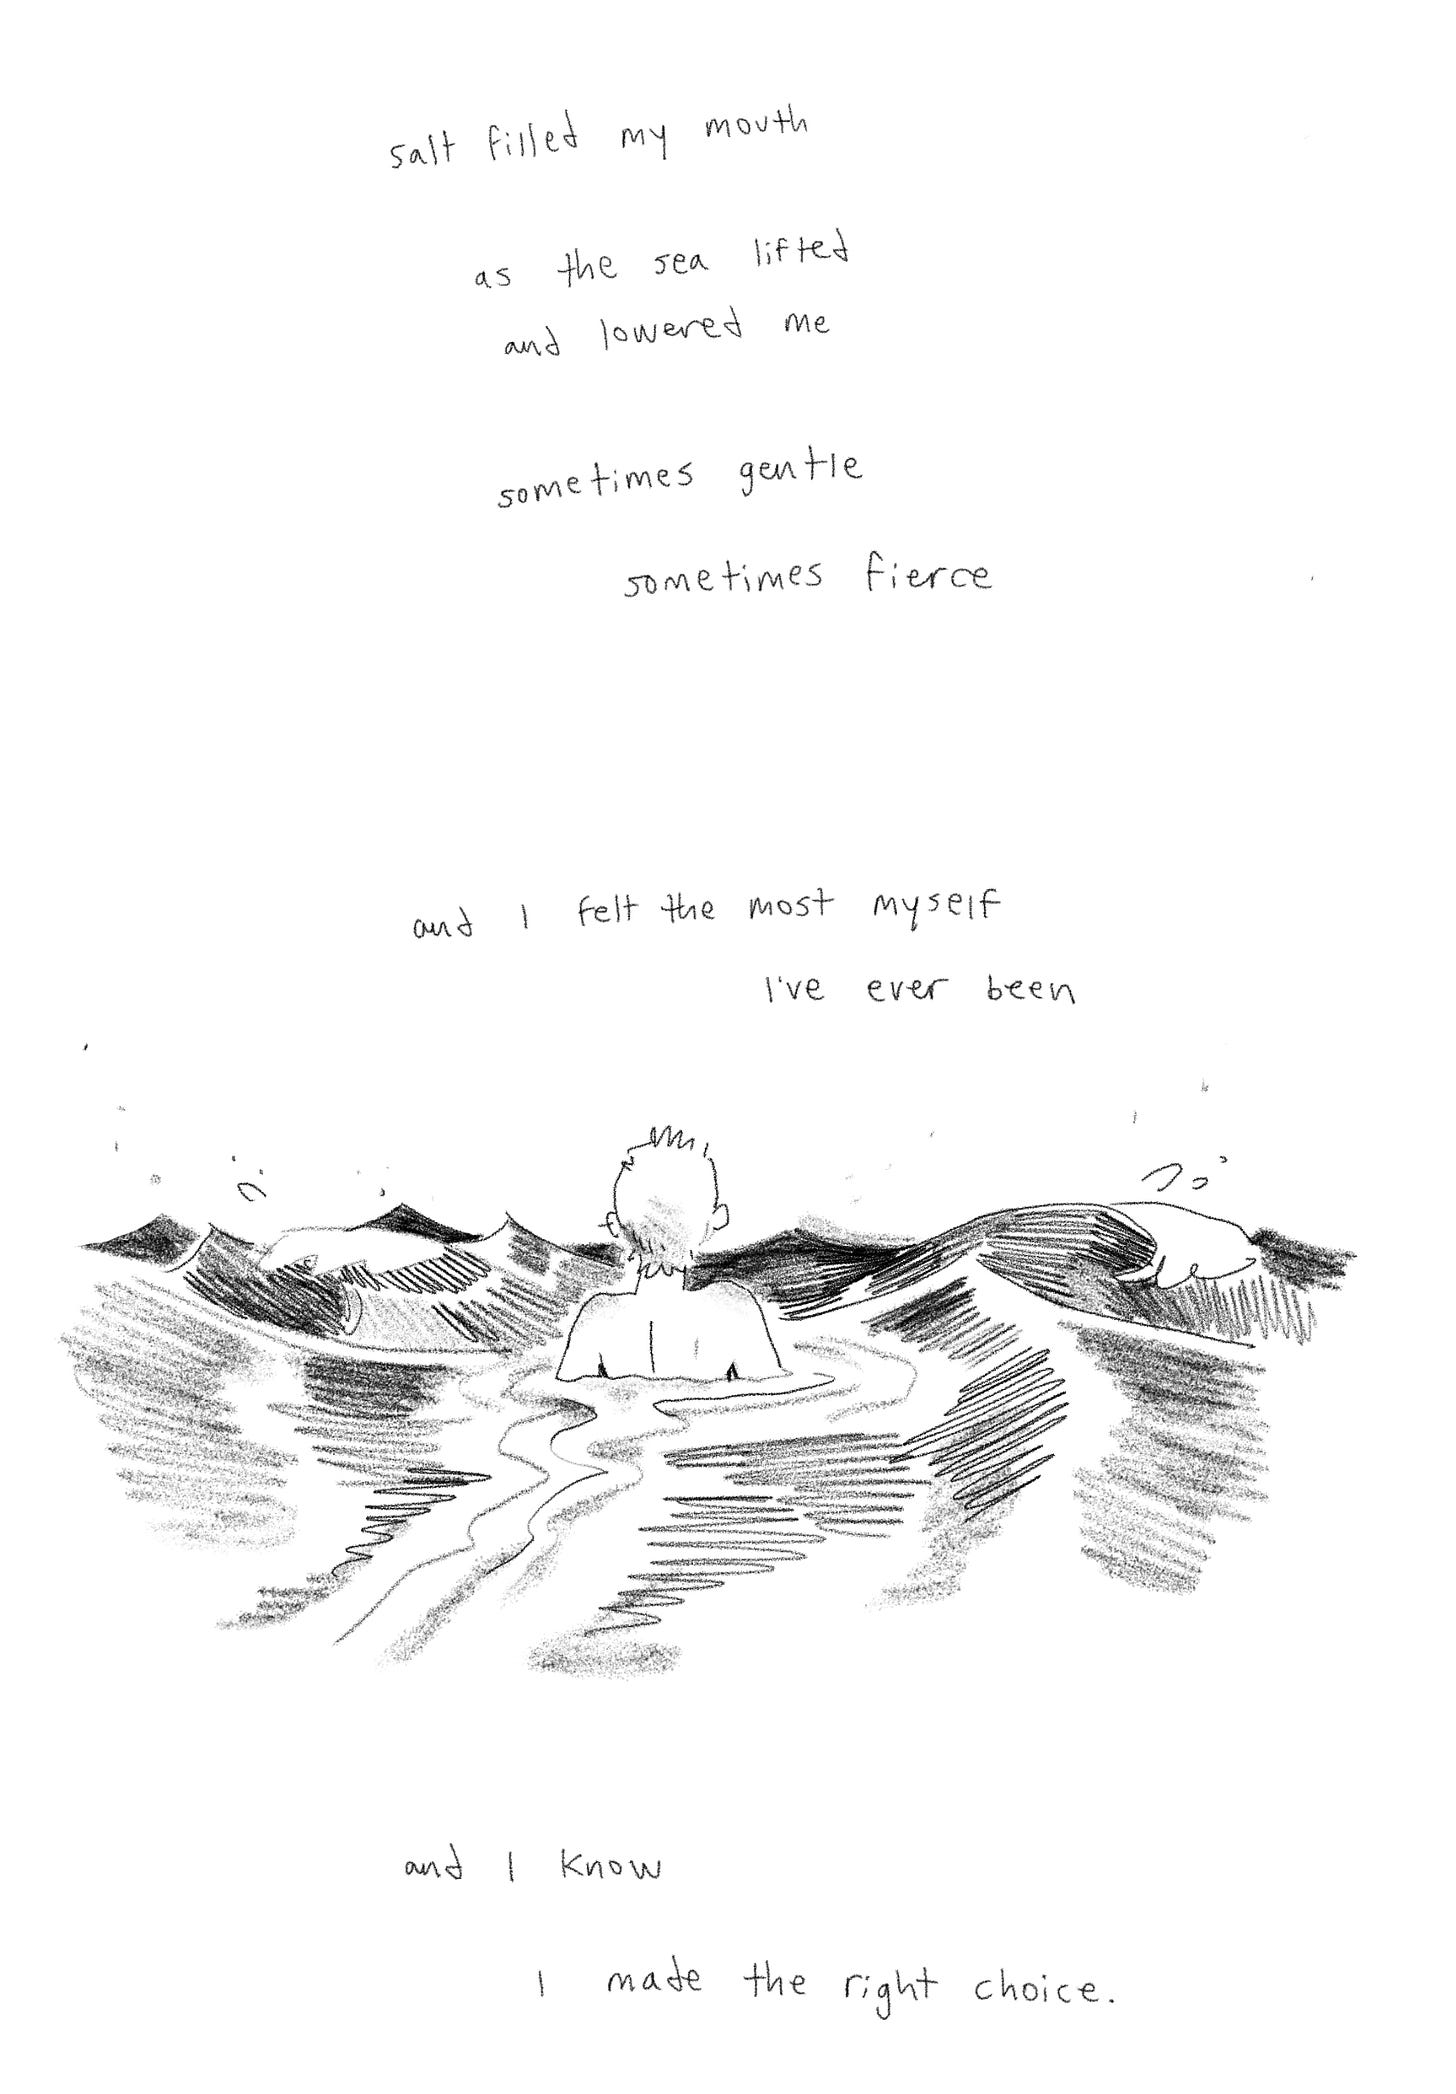 salt filled my mouth
as the sea lifted
and lowered me
sometimes gentle
sometimes fierce
and I felt the most myself
I've ever been
and I know
I made the right choice.